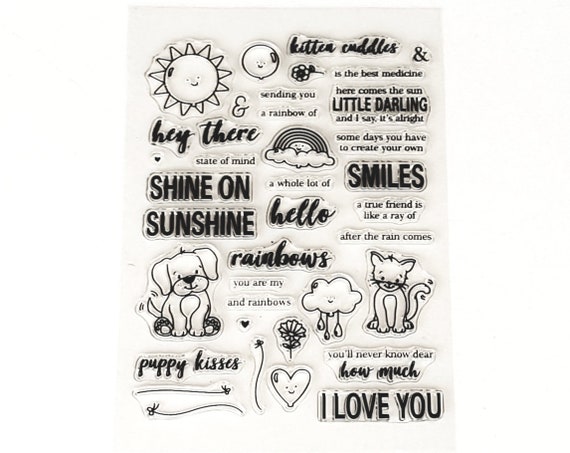 kitten cuddles
&
is the best medicine
sending you
here comes the sun
&
LITTLE DARLING
a rainbow of
and I say, it's alright
hey there
some days you have
to create your own
state of mind
SHINE ON
a whole lot of
SMILES
SUNSHINE
hello
a true friend is
like a ray of
after the rain comes
rainbows
you are my
and rainbows
puppy kisses
you'll never know dear
how much
I LOVE YOU